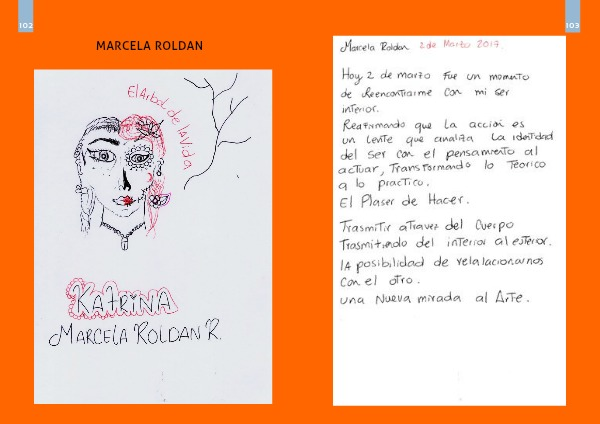 102
103
MARCELA ROLDAN
El Arbol de la Vida
KatRiNA
MARCELA ROLDAN R.
Marcela Roldan 2 de Marzo 2017.
Hoy 2 de marzo Fue un momento
de Reencontrarme con mi ser
interior.
Reafirmando que la acción es
un Lente que analiza La identidad
del Ser con el pensamiento al
actuar, Transformando lo Teorico
a lo practico.
El Plaser de Hacer.
Trasmitir atravez del Cuerpo
Trasmitiendo del interior al esterior.
LA posibilidad de relalacionarnos
Con el otro.
una Nueva mirada al Arte.